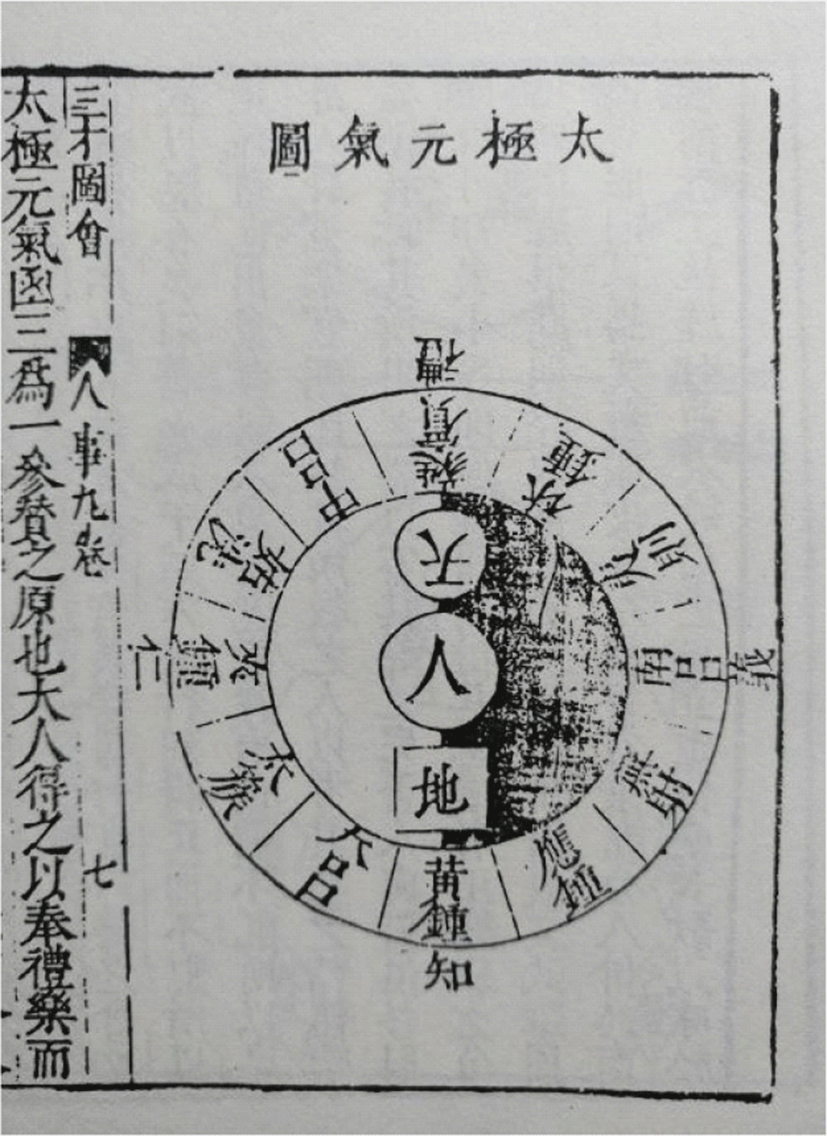 太極元氣圖
禮
蕤賓
林鍾
夷則
南呂
義
無射
應鍾
黃鍾
知
大呂
太簇
夾鍾
仁
姑洗
中呂
天
人
地
三才圖會 人事九卷 七
太極元氣函三爲一參賛之原也大人得之以奉禮樂而